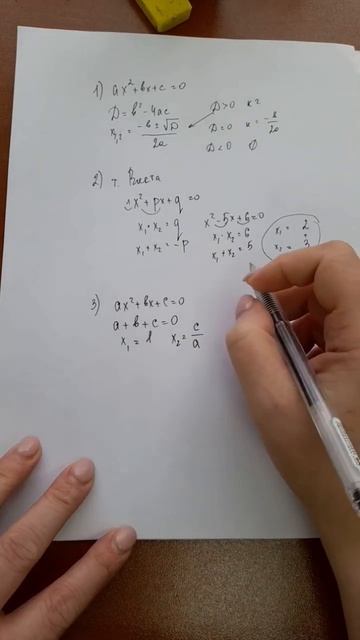 1) ax²+bx+c=0
D=b²-4ac
x₁,₂=(-b±√D)/2a
D>0 x²
D=0 x=-b/2a
D<0 ∅
2) т. Виета
1x²+px+q=0
x₁·x₂=q
x₁+x₂=-p
x²-5x+6=0
x₁·x₂=6
x₁+x₂=5
x₁= 2
x₂= 3
3) ax²+bx+c=0
a+b+c=0
x₁=1 x₂=c/a